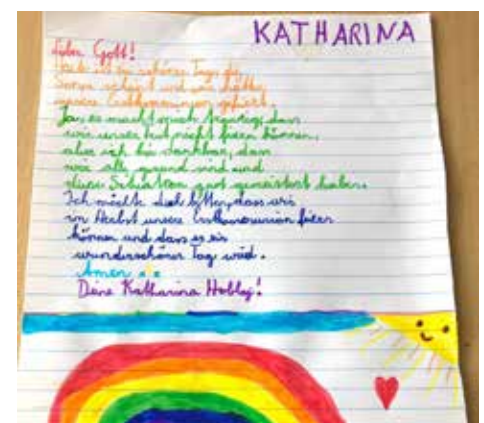 KATHARINA
Lieber Gott!
Heute ist ein schöner Tag, die
Sonne scheint und wir hätten
unsere Erstkommunion gefeiert.
Ja, es macht mich traurig, dass
wir unser Fest nicht feiern können,
aber ich bin dankbar, dass
wir alle gesund sind und
diese Situation gut gemeistert haben.
Ich möchte dich bitten, dass wir
im Herbst unsere Erstkommunion feiern
können und dass es ein
wunderschöner Tag wird.
Amen
Deine Katharina